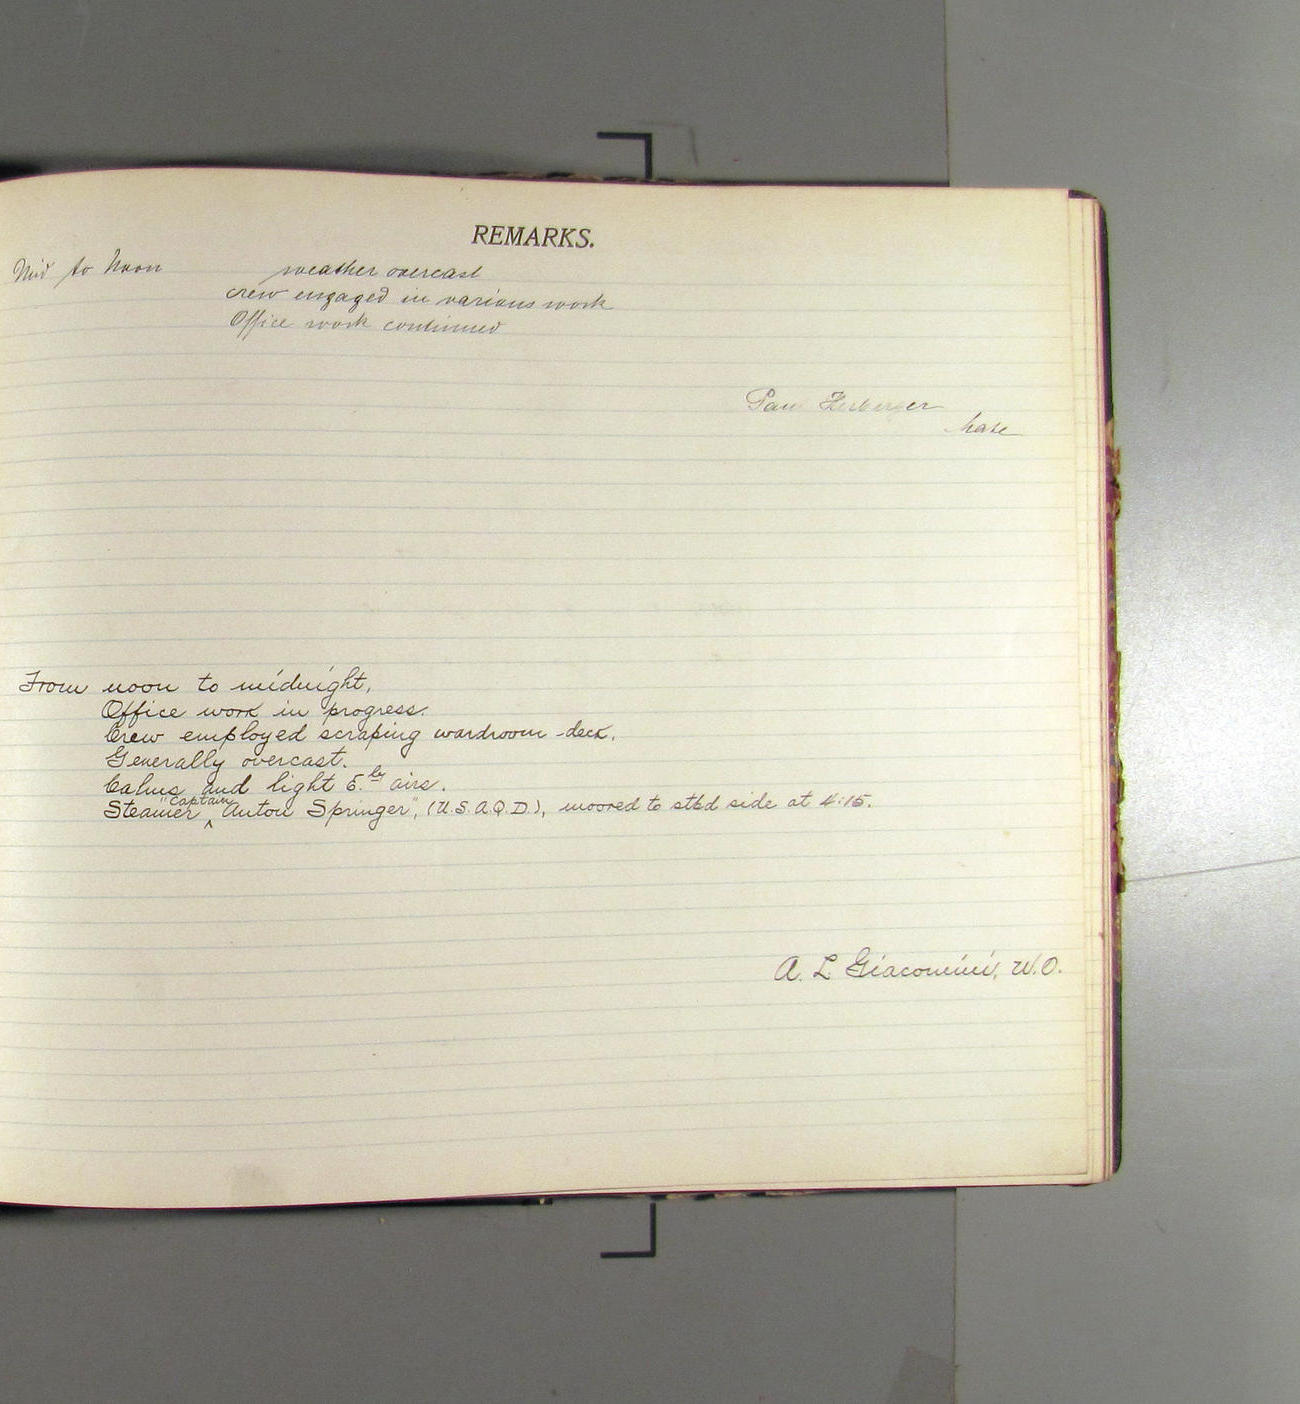 REMARKS.
Mid to Noon weather overcast
crew engaged in various work
Office work continued
Mate
From noon to midnight,
Office work in progress.
Crew employed scraping wardroom deck.
Generally overcast.
Calms and light E.ly airs.
Steamer "Captain Anton Springer", (U.S.A.Q.D.), moored to stbd side at 4:15.
A. L Giacomini, W.O.